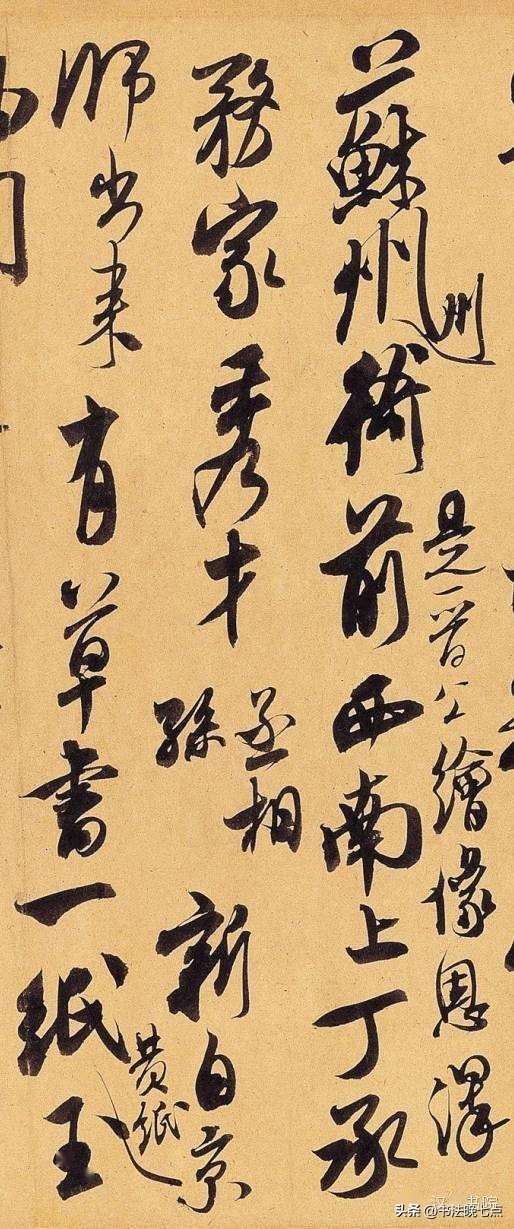 蘇州衙前西南上丁承
州
是晉公繪像恩澤
務家秀才
丞相
孫
新自京
師出來有草書一紙
黃紙
头条 @书法晚七点